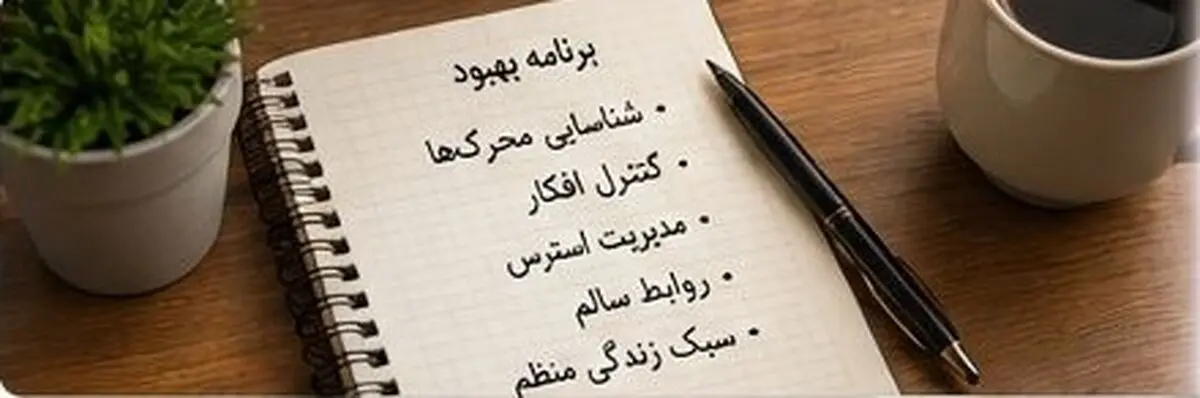 برنامه بهبود
• شناسایی محرک‌ها
• کنترل افکار
• مدیریت استرس
• روابط سالم
• سبک زندگی منظم